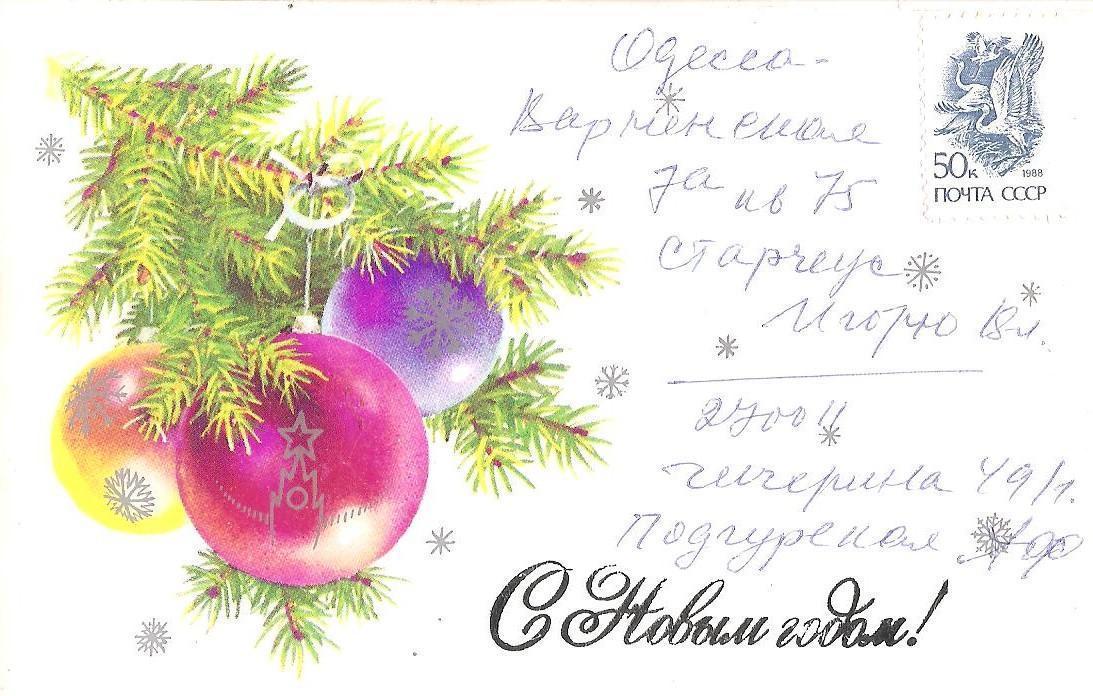 Одесса-
Варненская
7а кв 75
Старчеус
Игорю Вл.
270011
Чичерина 49/1.
Подгурская
50к 1988
ПОЧТА СССР
С Новым годом!